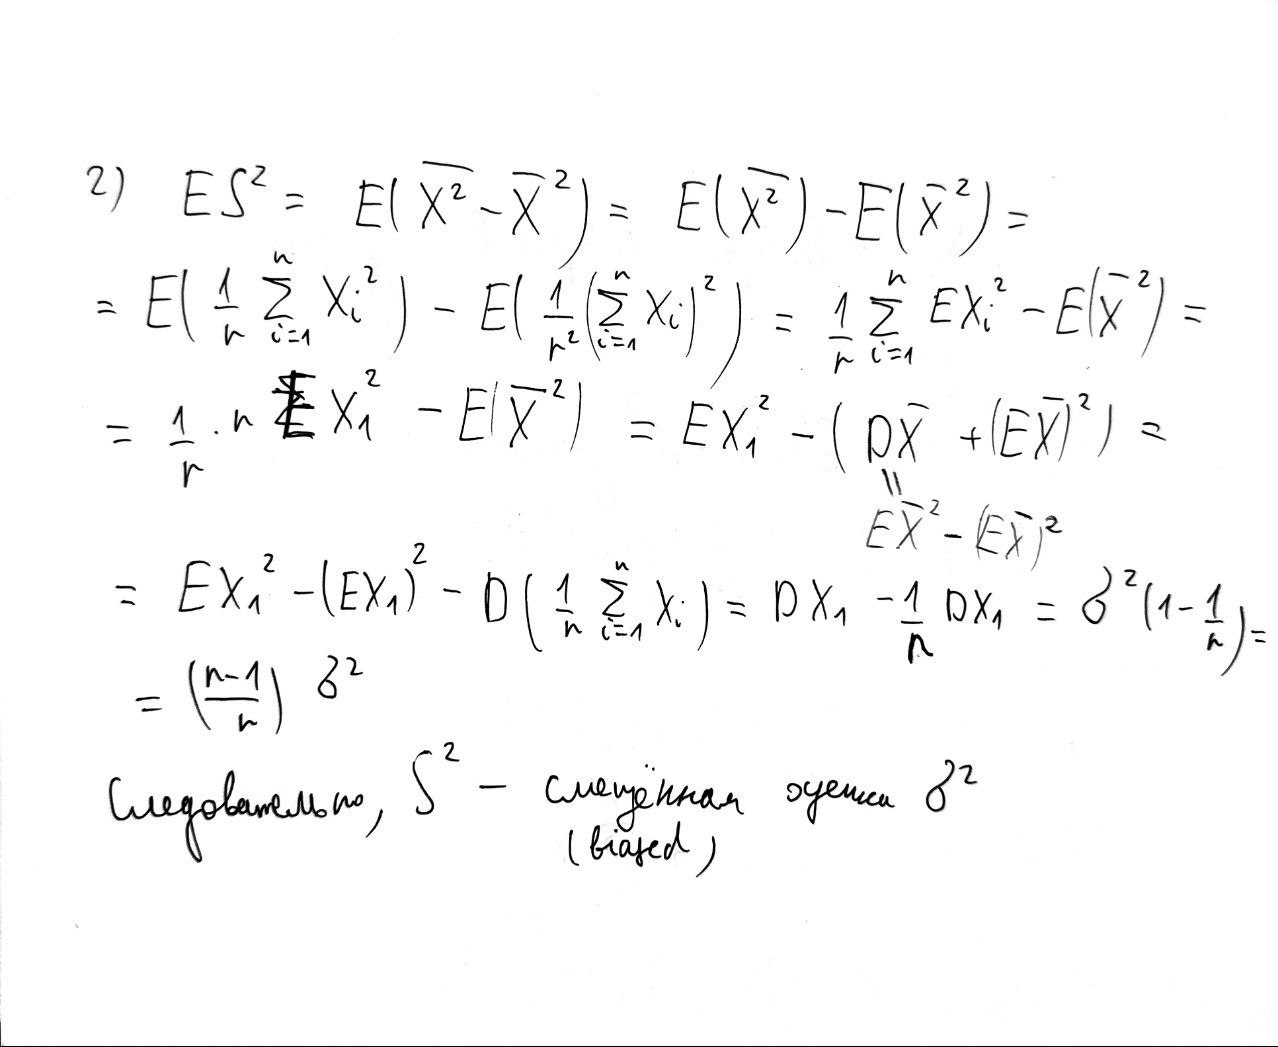 2) ES² = E( \overline{X²} - \overline{X}² ) = E(\overline{X²}) - E(\overline{X}²) =
= E( \frac{1}{n} \sum_{i=1}^{n} X_i² ) - E( \frac{1}{n²} ( \sum_{i=1}^{n} X_i )² ) = \frac{1}{n} \sum_{i=1}^{n} EX_i² - E(\overline{X}²) =
= \frac{1}{n} · n E X₁² - E(\overline{X}²) = EX₁² - ( D\overline{X} + (E\overline{X})² ) =
॥
E\overline{X}² - (E\overline{X})²
= EX₁² - (EX₁)² - D( \frac{1}{n} \sum_{i=1}^{n} X_i ) = DX₁ - \frac{1}{n} DX₁ = σ² (1 - \frac{1}{n}) =
= ( \frac{n-1}{n} ) σ²
Следовательно, S² - смещённая оценка σ²
(biased)